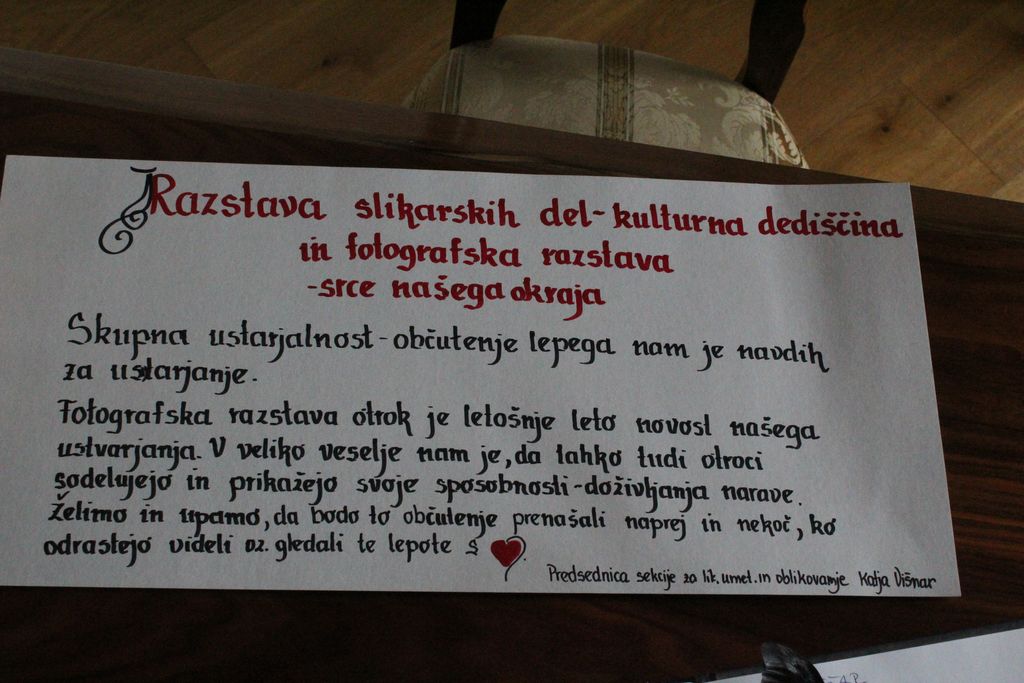 Razstava slikarskih del-kulturna dediščina
in fotografska razstava
-srce našega okraja
Skupna ustarjalnost-občutenje lepega nam je navdih
za ustarjanje.
Fotografska razstava otrok je letošnje leto novost našega
ustvarjanja. V veliko veselje nam je, da lahko tudi otroci
sodelujejo in prikažejo svoje sposobnosti-doživljanja narave.
Želimo in upamo, da bodo to občutenje prenašali naprej in nekoč, ko
odrastejo videli oz. gledali te lepote s
Predsednica sekcije za lik. umet. in oblikovanje Katja Višnar